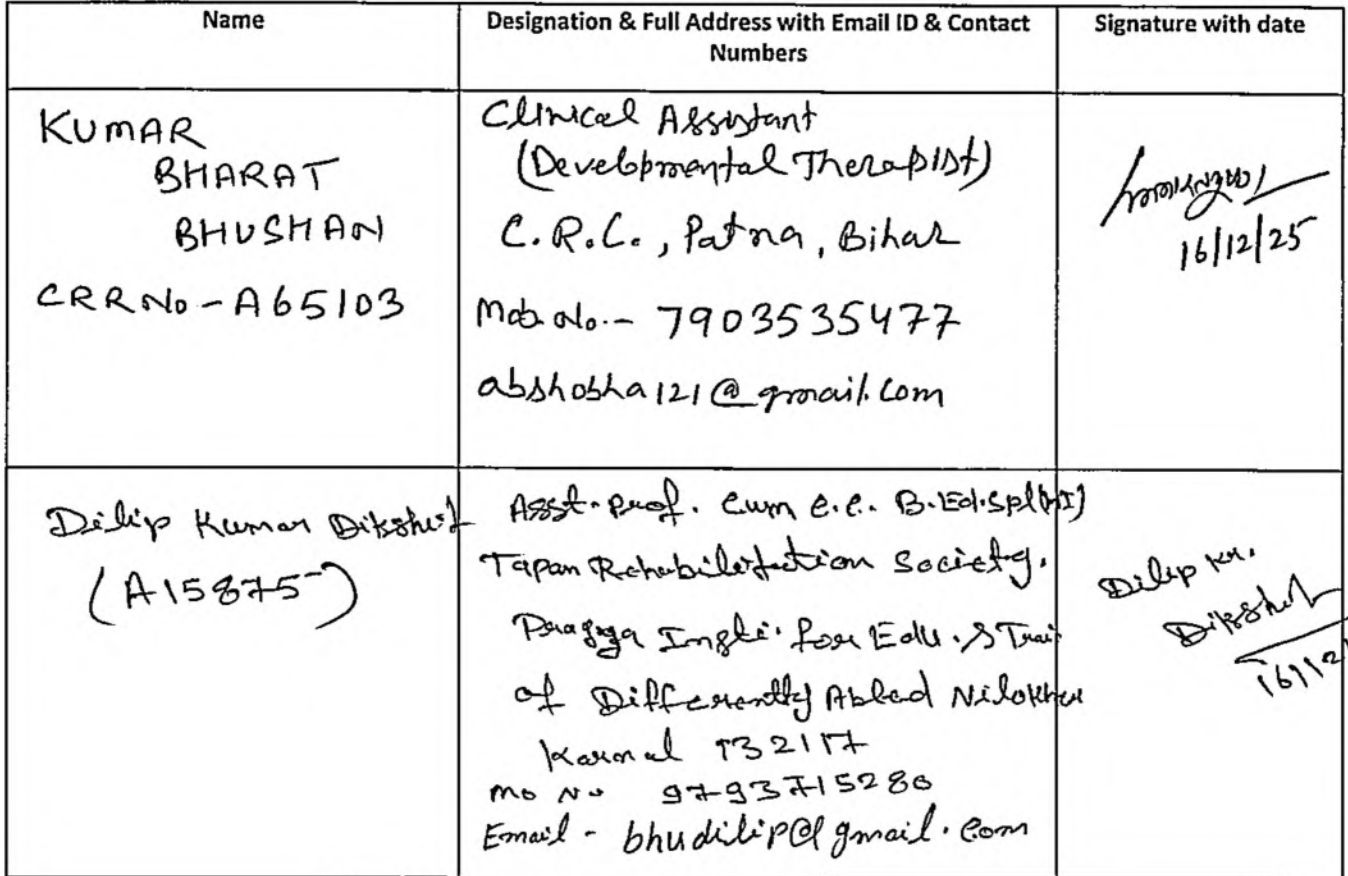 Name
Designation & Full Address with Email ID & Contact
Numbers
Signature with date
KUMAR
BHARAT
BHUSHAN
CRR No - A65103
Clinical Assistant
(Developmental Therapist)
C.R.C., Patna, Bihar
Mob. No. - 7903535477
abshobha121@gmail.com
16/12/25
Dilip Kumar Dikshit
(A15875)
Asst. Prof. Cum C.C. B.Ed.Spl(HI)
Tapan Rehabilitation Society.
Pragya for Edu. & Trai
of Differently Abled Nilokheri
Karnal 132117
Mo No 9793715280
Email - bhudilip@gmail.com
Dilip Kr.
Dikshit
16/12